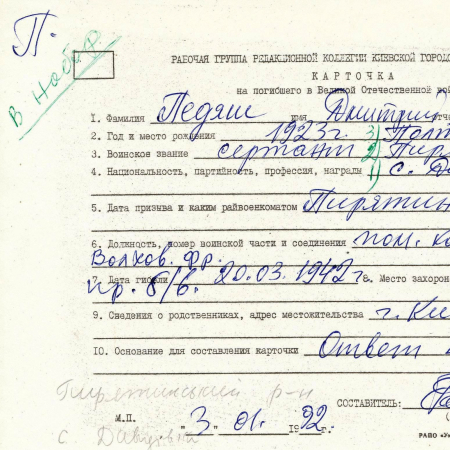 П.
В Набор.
РАБОЧАЯ ГРУППА РЕДАКЦИОННОЙ КОЛЛЕГИИ КИЕВСКОЙ ГОРОДС
КАРТОЧКА
на погибшего в Великой Отечественной вой
1. Фамилия Педяш имя Дмитрий отче
2. Год и место рождения 1923г. 3) Полт
3. Воинское звание сержант 2) Пир
4. Национальность, партийность, профессия, награды 1) с. Да
5. Дата призыва и каким райвоенкоматом Пирятин
6. Должность, номер воинской части и соединения пом. ко
Волхов. фр.
7. Дата гибели пр. б/в. 20.03.1942 г. 8. Место захорон
9. Сведения о родственниках, адрес местожительства г. Ки
10. Основание для составления карточки Ответ
Пирятинський р-н
СОСТАВИТЕЛЬ:
М.П. "3" 01. 1992
с Давидовка
РАПО «Ук